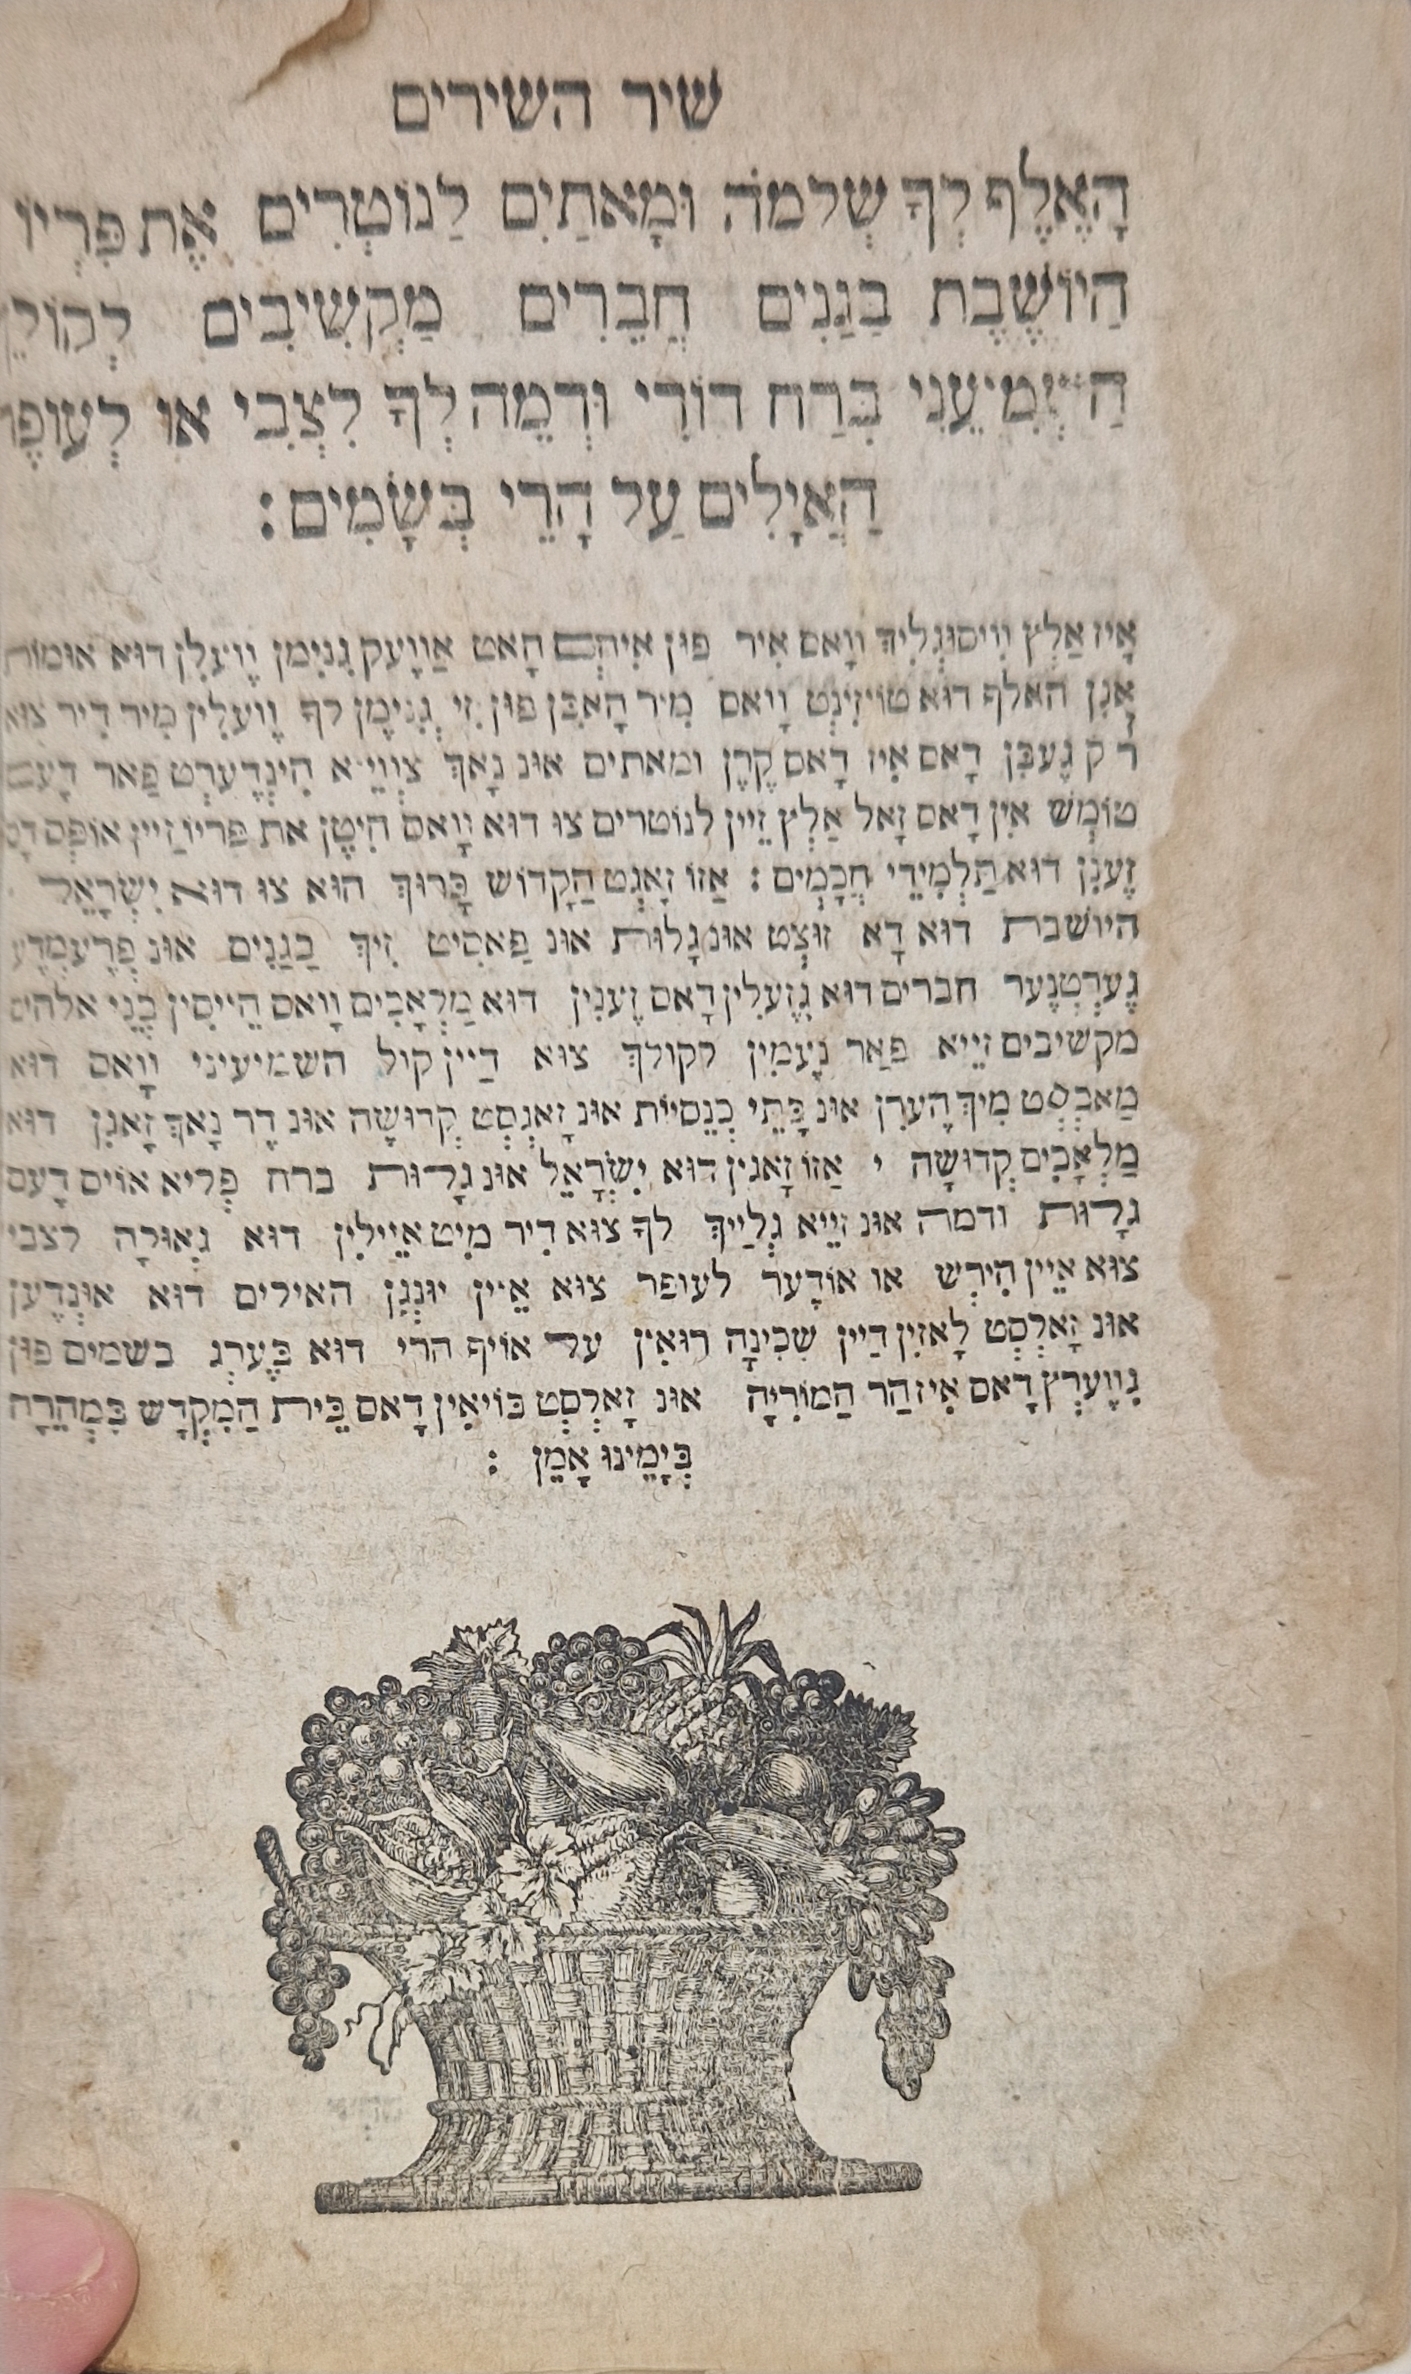 שיר השירים
הָאֶלֶף לְךָ שְׁלֹמֹה וּמָאתַיִם לַנוֹטְרִים אֶת פִּרְיוֹ
הַיוֹשֶׁבֶת בַּגַנִים חֲבֵרִים מַקְשִׁיבִים לְקוֹלֵךְ
הַשְׁמִיעֵנִי בְּרַח דוֹדִי וּדְמֵה לְךָ לִצְבִי אוֹ לְעוֹפֶר
הָאֲיָלִים עַל הָרֵי בְּשָׂמִים :
אִיז אַלְץ וִויסוּגְלִיךְ וָואס אִיר פון אִיהְם הָאט אַוֶועק גִנִימן וֶועלִן דוּא אומות
אִנִן האלף דוּא טויזִינְט וָואס מִיר הָאבִּן פון זִי גְנִימֶן לך וֶועלִין מִיר דִיר צוּא
ר ק גֶעבִּן דָאס אִיז דָאס קֶרֶן ומאתים אונ נָאךְ צְוֵויא הִינְדֶערְט פַאר דָעם
טומְש אִין דָאס זָאל אַלְץ זַיין לנוטרים צו דוּא וָואס הִיטֶן את פריו זַיין אופְּס דָס
זֶענִן דוּא תַּלְמִידֵי חֲכָמִים : אַזוֹ זָאגְט הַקָדוֹשׁ בָּרוּךְ הוּא צוּ דוּא יִשְׂרָאֵל
היושבת דוּא דָא זוּצְט אונ גָלוּת אונ פַּאסִיט זִיךְ בַגַנִים אונ פְרֶעמְדֶע
גֶערְטְנֶער חברים דוּא גְזֶעלִין דָאס זֶענִין דוּא מַלְאָכִים וָואס הֵייסִין בְּנֵי אלהים
מקשיבים זייא פַאר נֶעמִין לקולך צוּא דַיין קול השמיעיני וָואס דוּא
מַאכְסְט מִיךְ הֶערִן אונ בָּתֵּי כְנֵסִיוֹת אונ זָאגְסְט קְדוּשָׁה אונ דֶר נָאךְ זָאגִן דוּא
מַלְאָכִים קְדוּשָׁה י אַזוֹ זָאגִין דוּא יִשְׂרָאֵל אונ גָלוּת ברח פְלִיא אוֹיס דָעם
גָלוּת ודמה אונ זַייא גְלַייךְ לך צוּא דִיר מִיט אֵיילִין דוּא גְאוּלָה לצבי
צוּא אֵיין הִירְשׁ או אוֹדֶער לעופר צוּא אֵיין יוּנְגֶן האילים דוּא אוּנְדֶען
אונ זָאלְסְט לָאזִין דַיין שְׁכִינָה רוּאִין על אוֹיף הרי דוּא בֶּערְג בשמים פון
גִוֶוערְץ דָאס אִיז הַר הַמוֹרִיָה אונ זָאלְסְט בּוֹיאִין דָאס בֵּית הַמִקְדָשׁ בִּמְהֵרָה
בְּיָמֵינוּ אָמֵן :